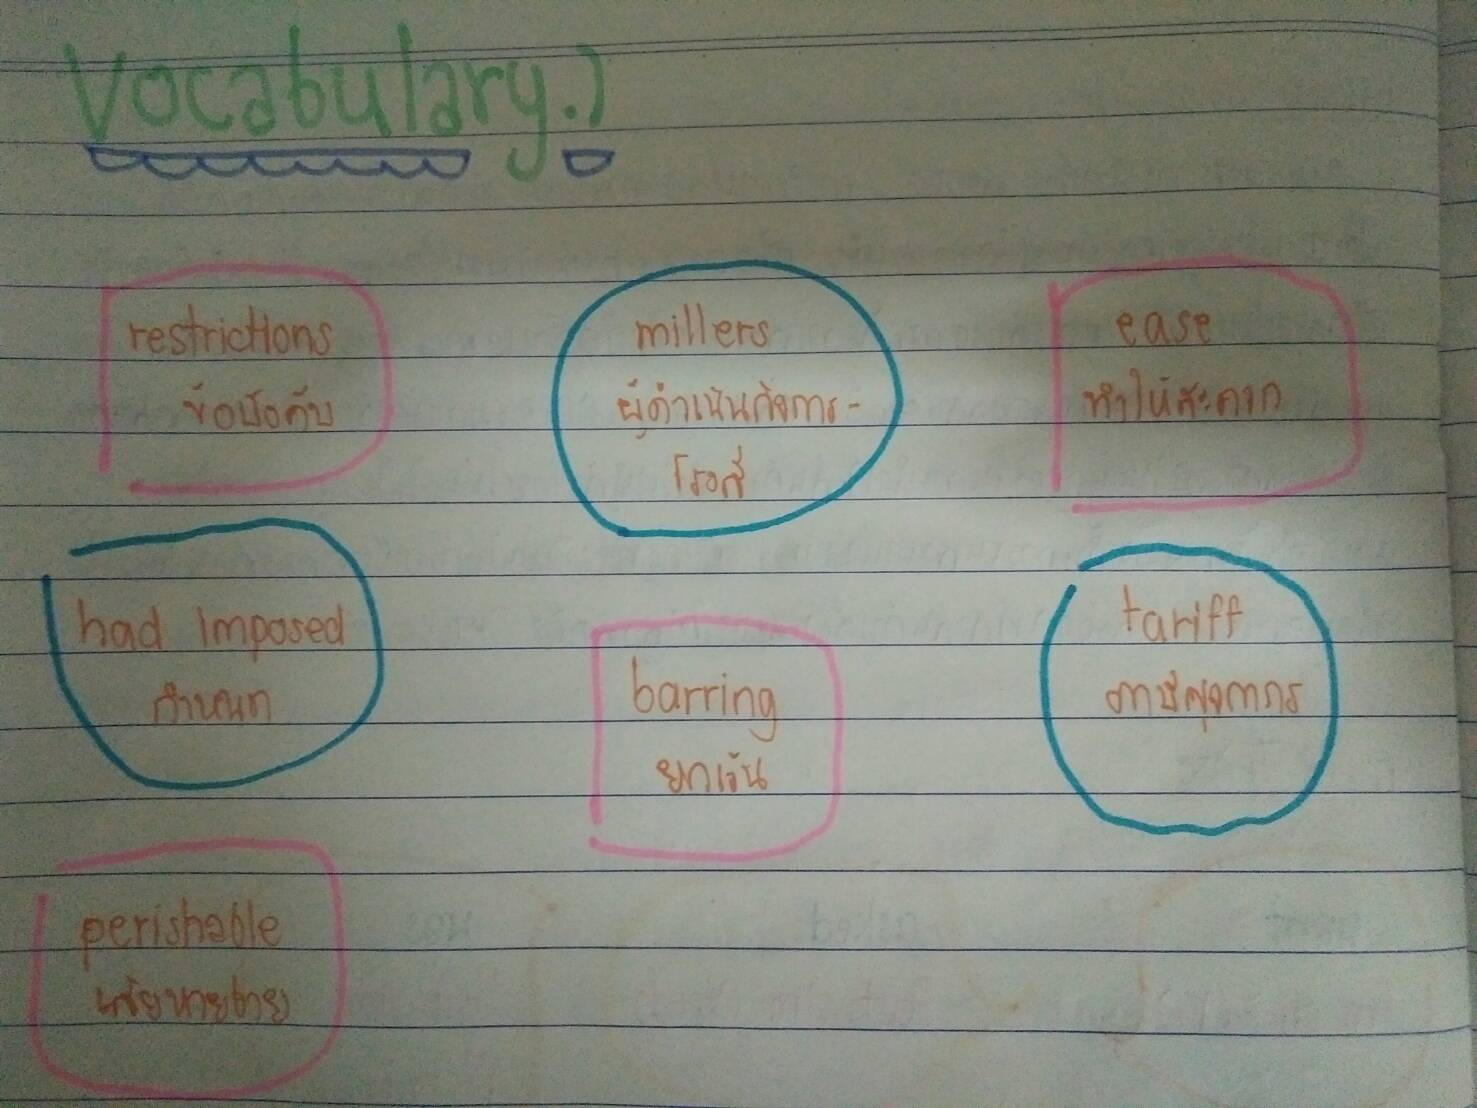 Vocabulary.)
restrictions
ข้อบังคับ
millers
ผู้ดำเนินกิจการ-
โรงสี
ease
ทำให้สะดวก
had imposed
กำหนด
barring
ยกเว้น
tariff
ภาษีศุลกากร
perishable
เสียหายง่าย